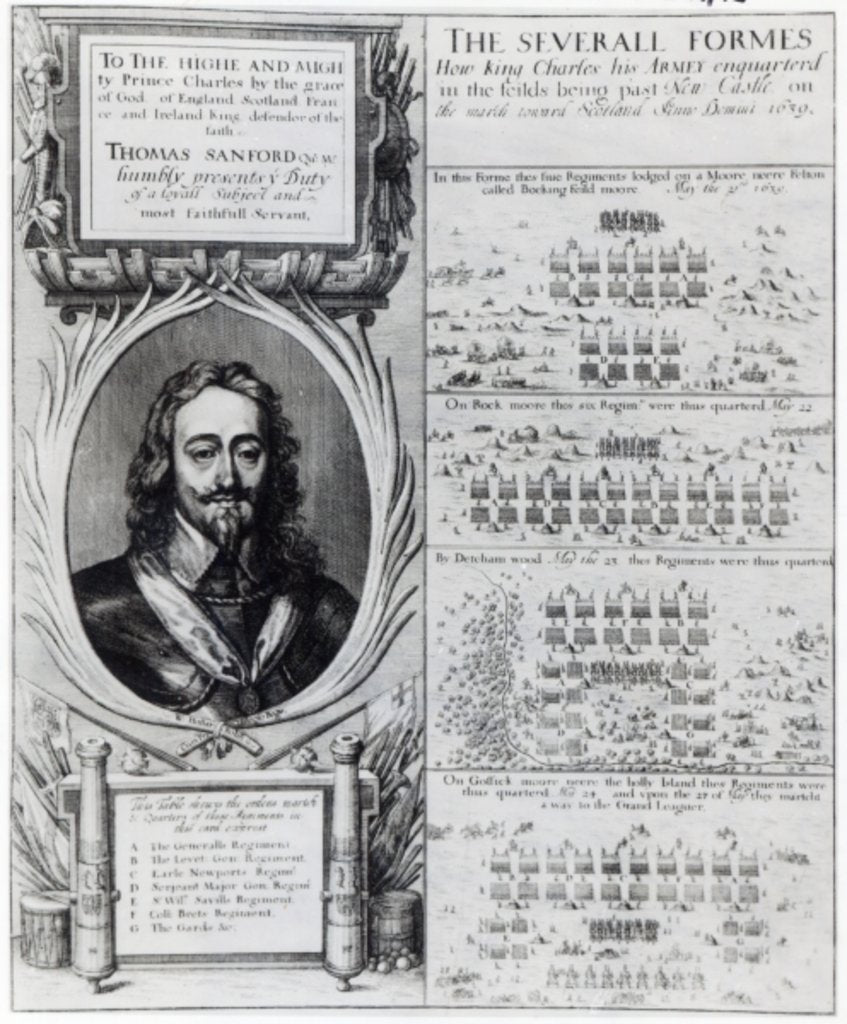 TO THE HIGHE AND MIGH
ty Prince Charles by the grace
of God, of England Scotland Fran
ce and Ireland King, defendor of the
faith.
THOMAS SANFORD
humbly presents ẏ Duty
of a loyall Subject and
most faithfull Servant,
W Hollar
This Table shewes the orders march
& Quarters of these Regiments in
that card exprest
A The Generalls Regiment
B The Levet: Gen: Regiment.
C Earle Newports Regim͏̃
D Serjeant Major Gen: Regim͏̃
E Sʳ Wilᵐ Savills Regiment.
F Coll: Brets Regiment.
G The Gards &c:
THE SEVERALL FORMES
How king Charles his ARMEY enquarterd
in the feilds being past New Castle, on
the march toward Scotland Anno Domini 1639.
In this Forme thes five Regiments lodged on a Moore neere Felton
called Bocking feild moore. May the 21ᵗ 1639.
On Bock moore thes six Regim:ᵗˢ were thus quarterd May 22
By Detcham wood May the 23 thes Regiments were thus quarterd
On Goswick moore neere the holly Island thes Regiments were
thus quarterd May 24 and upon the 27 of May they martcht
a way to the Grand Leaguer.